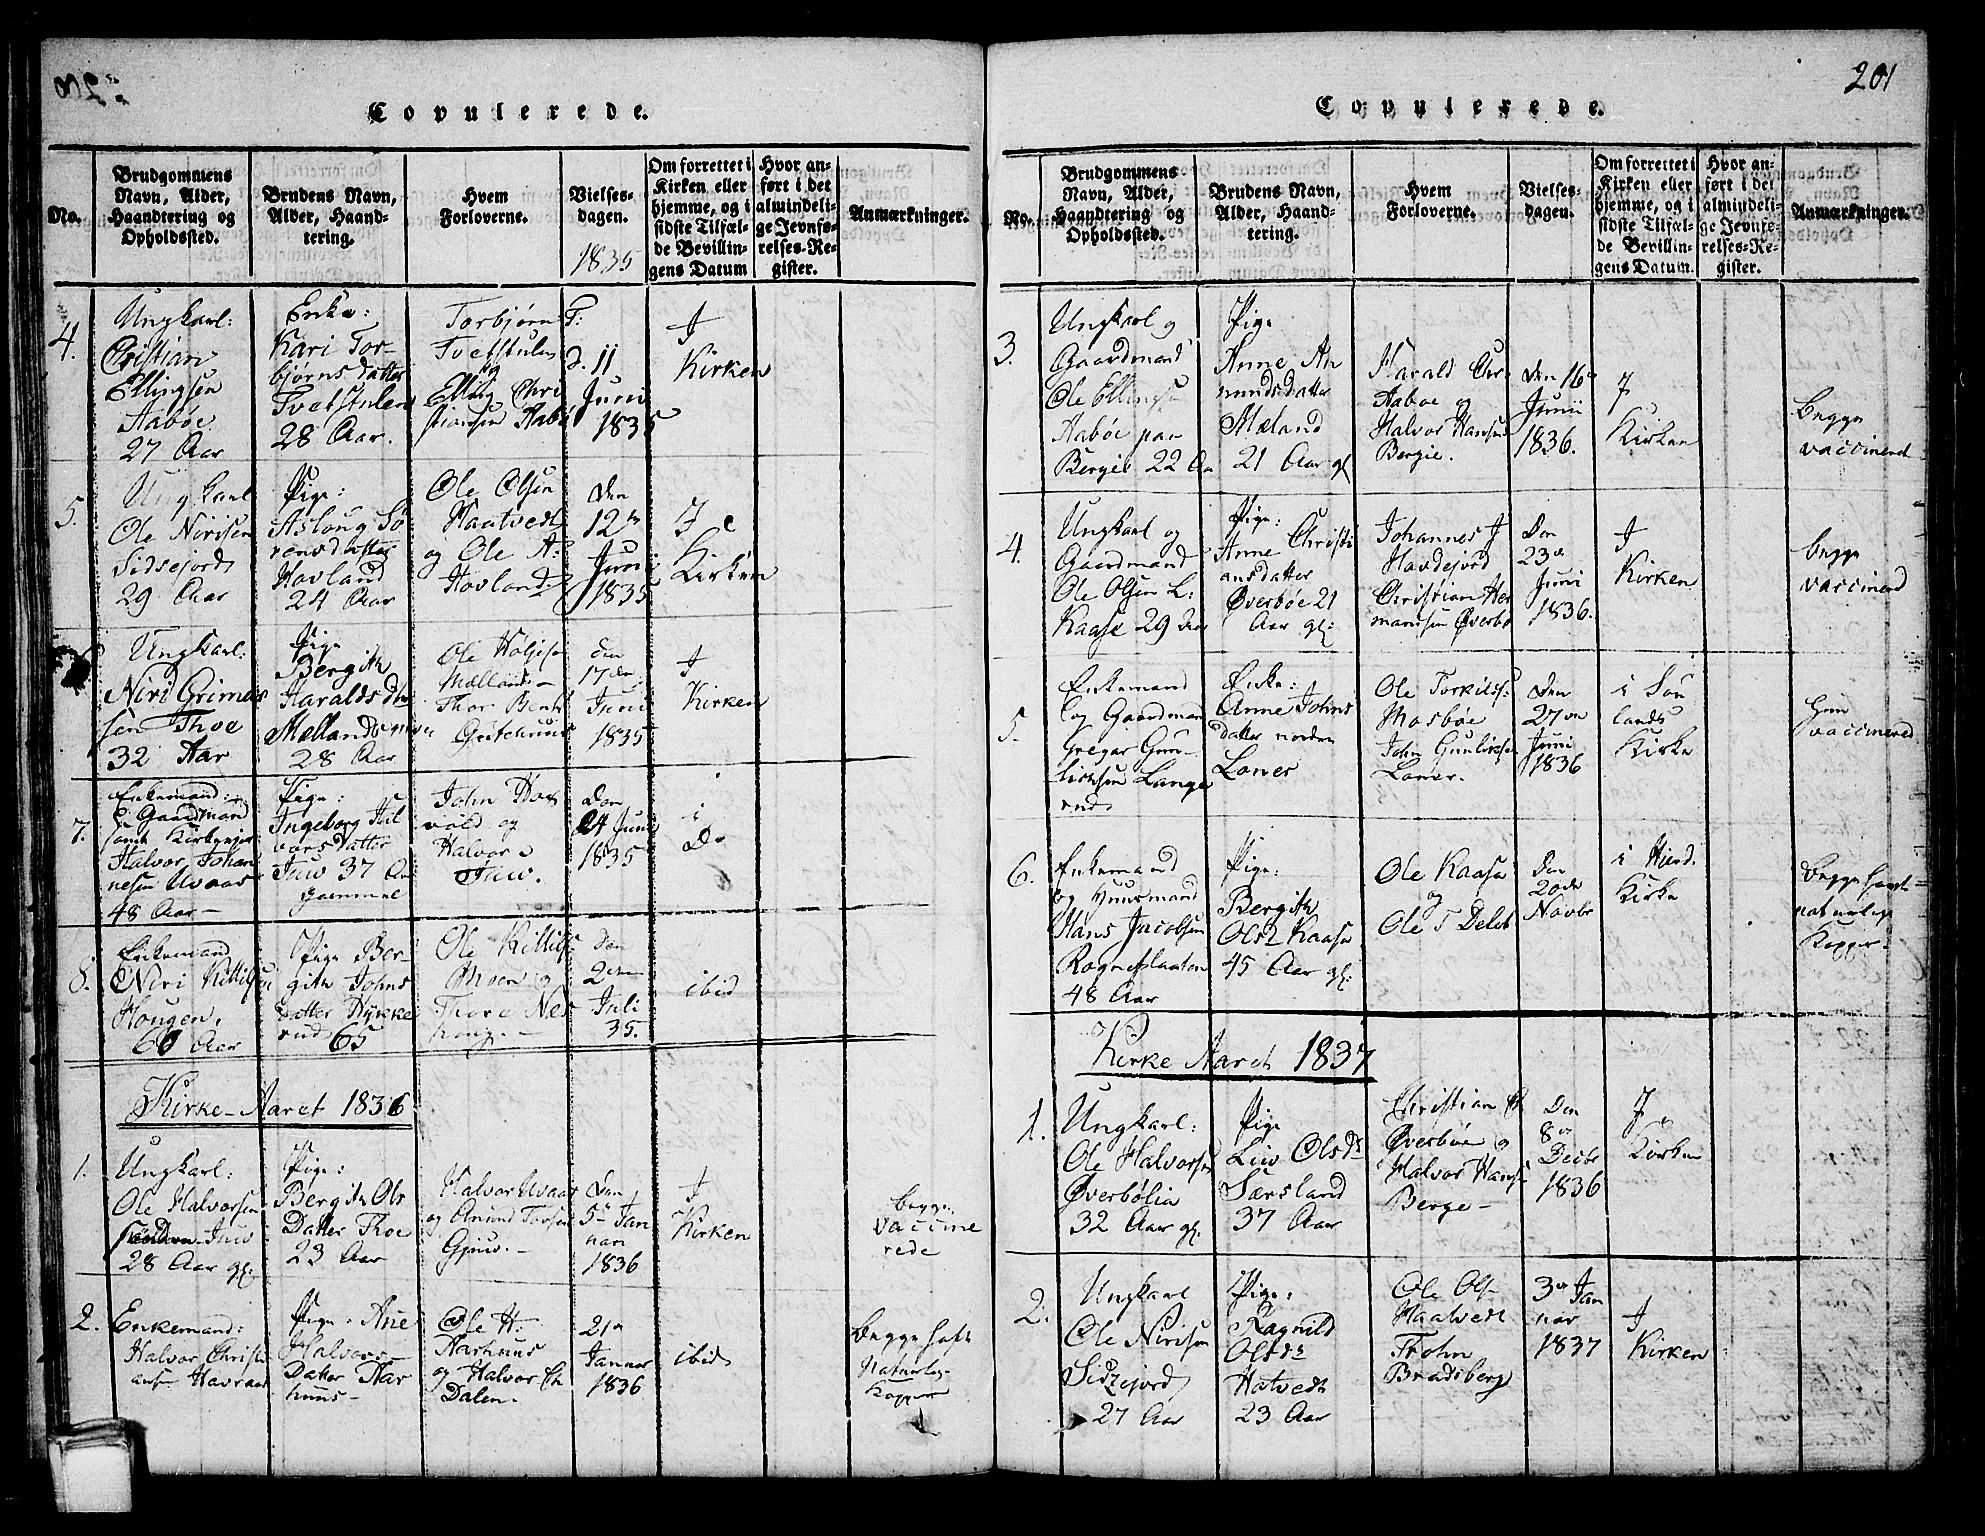 Copulerede.
No.
Brudgommens
Navn, Alder,
Haandtering og
Opholdssted.
Brudens Navn,
Alder, Haand-
tering.
Hvem
Forloverne.
Vielses-
dagen.
1835
Om forrettet i
Kirken eller
hjemme, og i
sidste Tilfæl-
de Bevillin-
gens Datum
Hvor an-
ført i det
almindeli-
ge Jevnfø-
relses-Re-
gister.
Anmærkninger.
4.
Ungkarl:
Cristian
Ellingsen
Aabøe
27 Aar
Enke:
Kari Tor-
bjørnsdatter
Tvetstulen
28 Aar.
Torbjørn T:
Tvetstulen
og
Elling Chri
stiansen Aabøe
d. 11
Juni
1835
I
Kirken
5.
Ungkarl
Ole Nirisen
Sidsejord
29 Aar
Pige:
Asloug Sø-
rensdatter
Hovland
24 Aar
Ole Olsen
Haatvedt
og Ole A:
Hovland:
den
12te
Juni
1835
I
Kirken
Ungkarl:
Niri Grimas
sen Thoe
32 Aar
Pige
Bergith
Haralds
28 Aar
Ole
Mælland-
Thor
den
17de
Juni
1835
I
Kirken
7.
Enkemand:
Gaardmand
samt
Halvor Johan
nesen Uvaas
48 Aar-
Pige:
Ingeborg Hal
vorsdatter
Juv 37 Aar
gammel
John Hos
vold og
Halvor
Juv.
Den
24 Juni
1835
i
Do
8.
Enkemand
Niri Kittilsen
Hougen,
60 Aar
Pige Ber-
gith Johns
datter Hykke
rud 65
Ole Kittils
Moen og
Thore Næs
houg.-
Den
2den
Juli
35.
ibid
Kirke-Aaret 1836
1.
Ungkarl:
Ole Halvorsen
Søndre Juv
28 Aar gl:
Pige:
Bergith Ols
Datter Thoe
23 Aar
Halvor Uvaas
og Anund Torsen
Gjuv.-
Den
5te Jan
uari
1836
I
Kirken
begge
vaccine
rede
2.
Enkemand:
Halvor Christi
ansen
Pige: Ane
Halvors-
Datter Aar
huus-
Ole H.
Aarhuus
og Halvor Ch
Dalen-
21de
Januar
1836
ibid
Begge haft
Naturlig-
Kopper
201
Copulerede.
No.
Brudgommens
Navn, Alder,
Haandtering og
Opholdssted.
Brudens Navn,
Alder, Haand-
tering.
Hvem
Forloverne.
Vielses-
dagen.
Om forrettet i
Kirken eller
hjemme, og i
sidste Tilfæl-
de Bevillin-
gens Datum.
Hvor an-
ført i det
almindeli-
ge Jevnfø-
relses-Re-
gister.
Anmærkninger.
3.
Ungkarl og
Gaardmand
Ole Ellingsen
Aabøe paa
Bergie 22 Aar
Pige
Anne An
nundsdatter
Mæland
21 Aar gl
Harald Chr
Aaboe og
Halvor Hansen
Bergie.
den 16de
Junii
1836.
I
Kirken
begge
vaccinerd
4.
Ungkarl og
Gaardmand
Ole Olsen L:
Kaase 29 Aar
Pige:
Anne Christi
ansdatter
Øverbøe 21
Aar gl:
Johannes J
Havdejord
Christian Her
mansen Øverbø
Den
23de
Juni
1836.
I
Kirken
begge
vaccinerd
5.
Enkemand
og Gaardmand
Gregar Gun-
licksen Lange
rud
Enke:
Anne Johns
datter norden
Loner
Ole Torkilds:
Mosbøe
John Gunlicksen
Loner.
Den
27de
Juni
1836
i Sou
lands
Kirke
Hun
vaccinered
6.
Enkemand
og Huusmand
Hans Jacobsen
Rogneplaaton
48 Aar
Pige:
Bergith
Olsd Kaasa
45 Aar gl:
Ole Kaasa
og
Ole T Deleb
Den
20de
Novbr
i Hierd.
Kirke
begge havt
naturlige
Kopper-
Kirke Aaret 1837
1.
Ungkarl:
Ole Halvorsen
Øverbølia
32 Aar gl.
Pige
Liv Olsdr
Særsland
37 Aar
Christian Ch
Øverbøe og
Halvor Hans-
Berge-
Den
8de
Decbr
1836
I
Kirken
2.
Ungkarl
Ole Nirisen
Sidzejord
27 Aar
Pige:
Ragnild
Olsdr
Hatvedt
23 Aar
Ole Ols-
Haatvedt
Brodsberg
3de Jan
uar
1837
I
Kirken